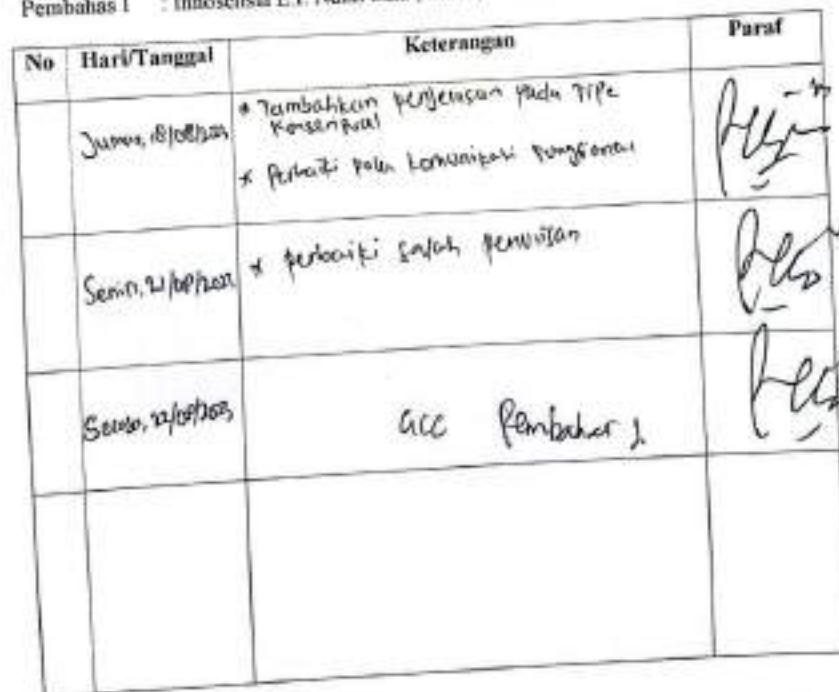 Pembahas I :
No Hari/Tanggal Keterangan Paraf
Jumat, 18/08/2023 * Tambahkan penjelasan pada Tipe
Konsensual
* Perbaiki pola komunikasi fungsional
Senin, 21/08/2023 * perbaiki salah penulisan
Selasa, 22/08/2023 acc Pembahas 1